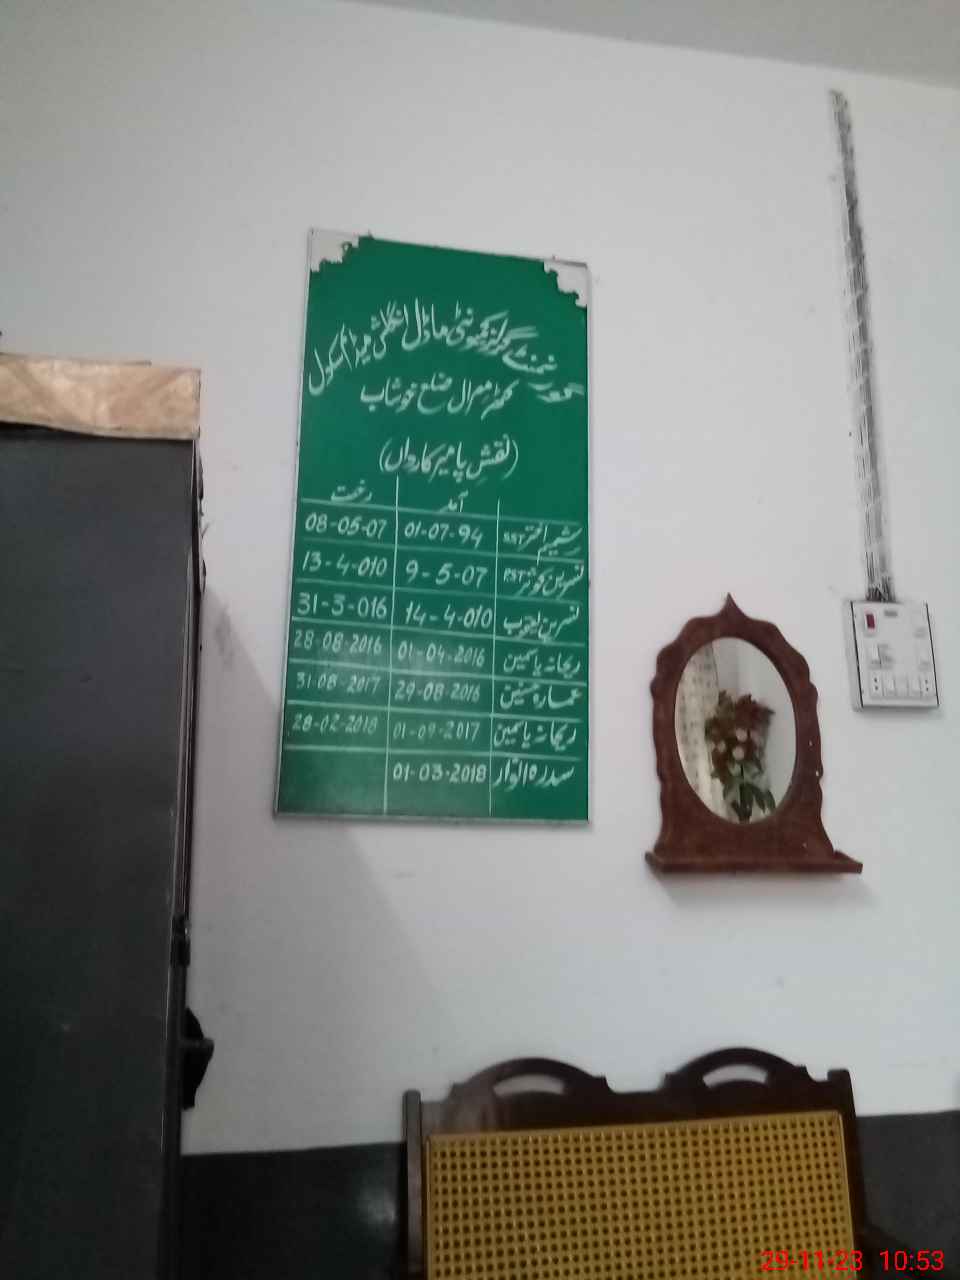 گورنمنٹ گرلز کمیونٹی ماڈل انگلش میڈیم سکول
کھڑ میرال ضلع خوشاب
(نقشِ پا میرِ کارواں)
آمد رخت
شمیم اختر SST 01-07-94 08-05-07
نسرین کوثر PST 9-5-07 13-4-010
نسرین ایوب 14-4-010 31-3-016
ریحانہ یاسمین 01-04-2016 28-08-2016
عمارہ حسنین 29-08-2016 31-08-2017
ریحانہ یاسمین 01-09-2017 28-02-2018
سدرہ انوار 01-03-2018
29-11-23 10:53